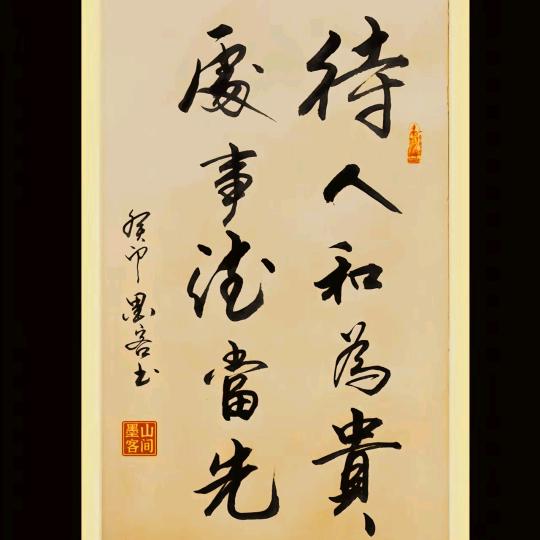 待人和為貴、
處事德當先
癸卯墨客书
山间墨客